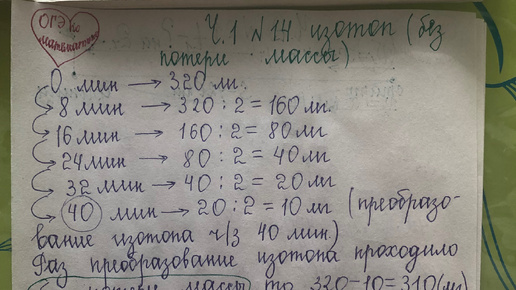 ОГЭ по
математике
Ч.1 №14 изотоп (без
потери массы)
0 мин → 320 мг.
8 мин → 320 : 2 = 160 мг.
16 мин → 160 : 2 = 80 мг
24 мин → 80 : 2 = 40 мг
32 мин → 40 : 2 = 20 мг
40 мин → 20 : 2 = 10 мг (преобразо-
вание изотопа ч/з 40 мин.)
Раз преобразование изотопа проходило
потери массы, то 320-10=310(мг)